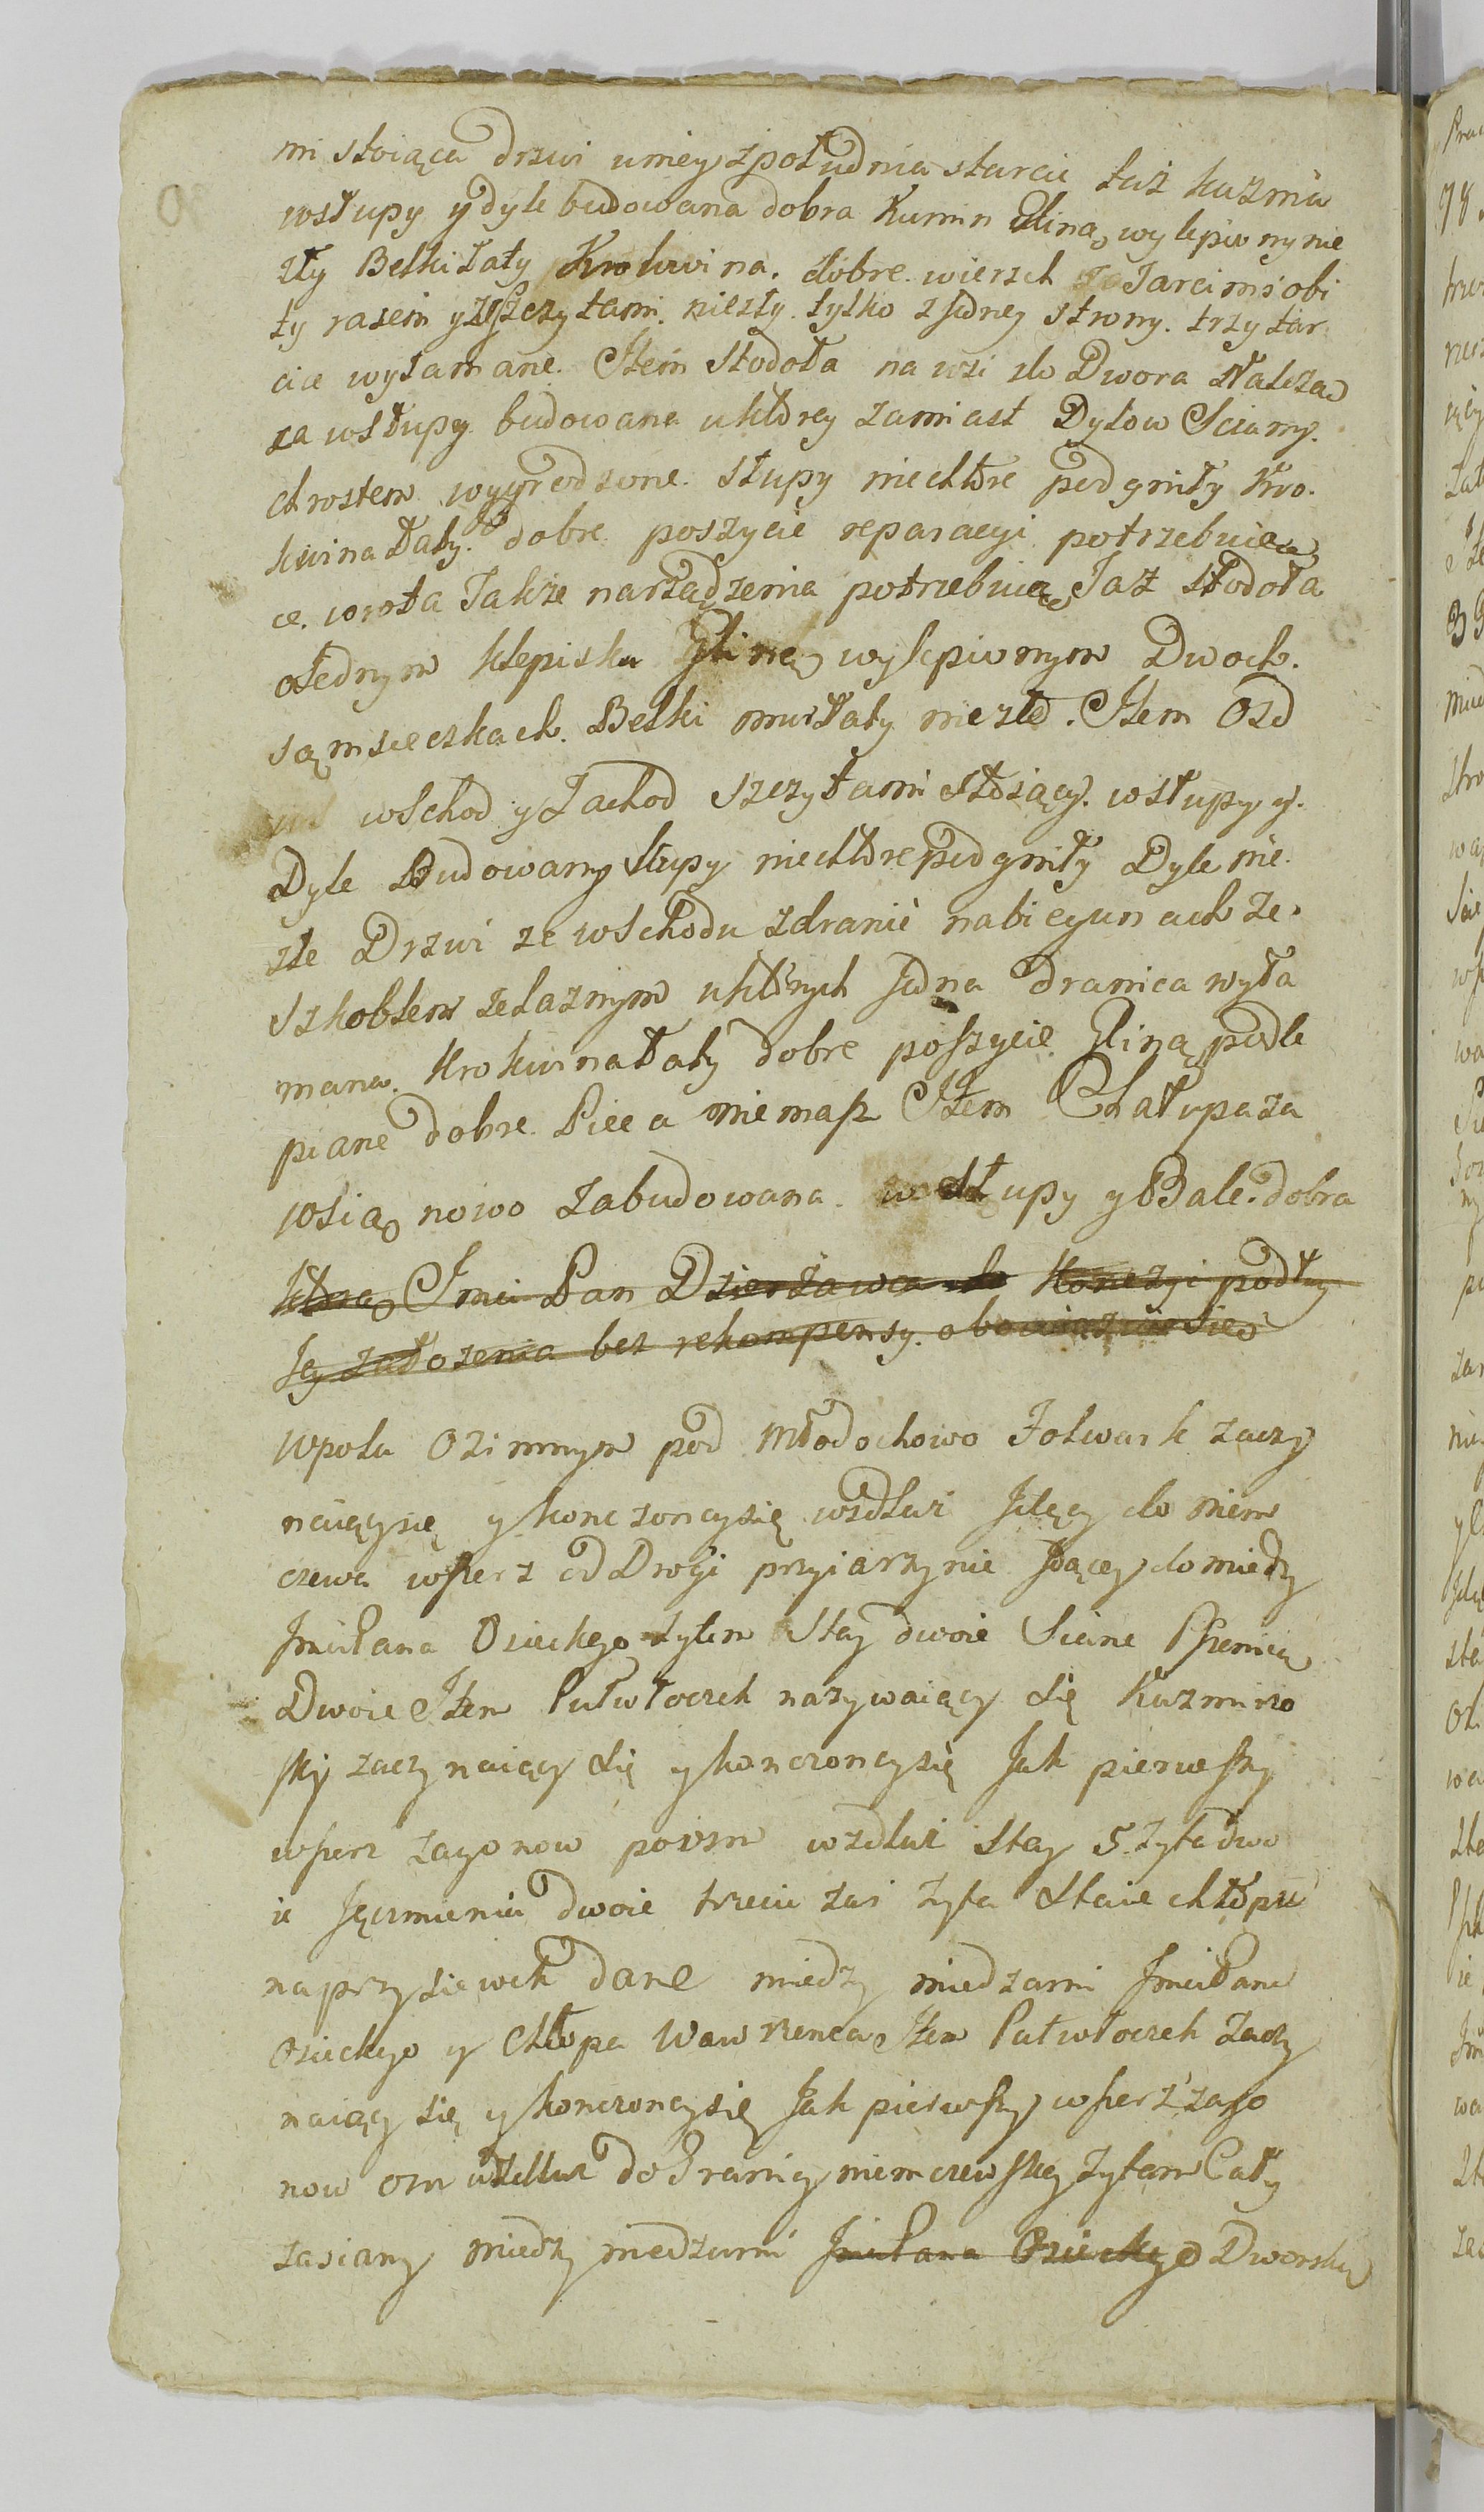 mi stoiąca drzwi u niey z południa starcic taż kuznia
wsłupy y dyle budowana dobra Kumin Gliną wylepiony nie
zły Belki Łaty Krokwina. dobre. wierzch Tarcimi obi
ty razem y z szczytami niezły. tylko z Jedney strony. trzy tar
cice wyłamane. Item Stodoła na wsi do Dwora należą
ca wsłupy budowana uktorey zamiast Dylow Sciany.
chrostem wygrodzone. Słupy niecktore podgniły Kro.
kwina Łaty. dobre poszycie reparacyi potrzebuią
ce. wrota Takze narządzenia potrzebuią Taz Stodoła
oJednym klepisku Gliną wylepionym Dwoch.
sąmsieczkach. Belki mur Łaty niezłe. Item Ozd
wschod y Zachod szczytami stoiący. wsłupy y.
Dyle Budowany Słupy niecktore podgniły Dyle nie
złe Drzwi ze wschodu zdranic nabiegunach ze.
Szkoblem zelaznym uktorych Jedna dranica wyła
mana. Krokwina Łaty dobre poszycie Gliną podle
piane dobre Pieca niemasz Item Chałupa za
wsią nowo zabudowana. wsłupy y Bale. dobra
ktorą Jmci Pan Dzierżawca do Konczyc podług
Jey założenia bez rekompensy. obowiązuie Się
Wpolu Ozimnym pod Młodochowo Folwark zaczy
naiący się y konczoncy się wzdłuż Idący do niem
czewa wszerz od Drogi przyiarzynie Idącey do miedzy
JmciPana Osieckiego żytem Stay dwoie Siane Pszenicą
Dwoie Item Pułwłoczek nazywaiący się Kuzmino
sky zaczynaiący się y konczoncy się Jak pierwszy
wszerz zagonow poosm wzdłuż Stay 5. żyta dwo
ie Jęczmienia dwoie trzecie zas żyta Staie chłopu
naprzysiewek dane miedzy miedzami JmciPana
Osieckiego y Chłopa Wawrzenca Item Pułwłoczek zaczy
naiący się y konczoncy się Jak pierwszy wszerz zago
now om wzdłuż do Granicy niemczewskiey żytem Cały
zasiany miedzy miedzami JmciPana Osieckiego Dworską